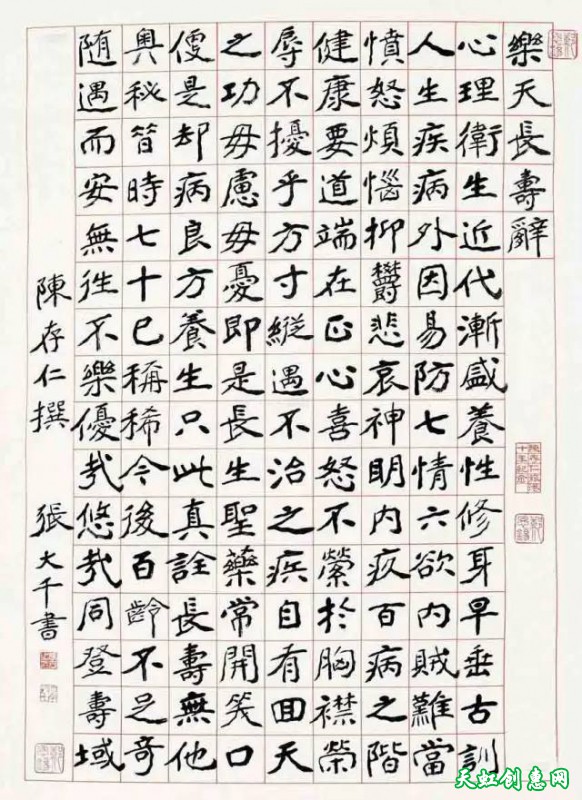 樂天長壽辭
心理衛生近代漸盛養性修身早垂古訓
人生疾病外因易防七情六欲內賊難當
憤怒煩惱抑鬱悲哀神明內疚百病之階
健康要道端在正心喜怒不縈於胸襟榮
辱不擾乎方寸縱遇不治之疾自有回天
之功毋慮毋憂即是長生聖藥常開笑口
便是却病良方養生只此真詮長壽無他
奧秘昔時七十已稱稀今後百齡不足奇
随遇而安無往不樂優哉悠哉同登壽域
陳存仁撰 張大千書
天虹创惠网